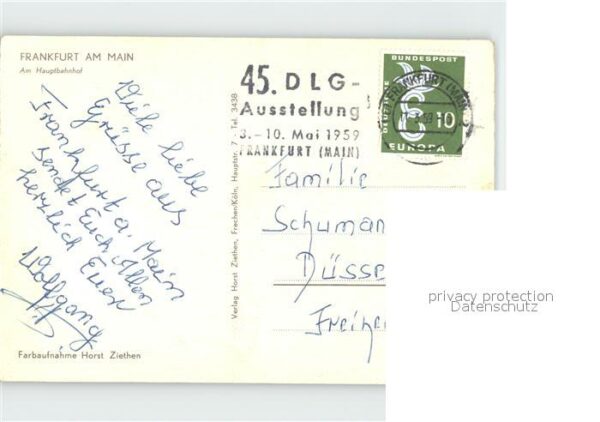 FRANKFURT AM MAIN
Am Hauptbahnhof
Viele liebe
Grüsse aus
Frankfurt a. Main
sendet Euch Allen
herzlich Euer
Wolfgang
Farbaufnahme Horst Ziethen
Verlag Horst Ziethen, Frechen/Köln, Hauptstr. 7 - Tel. 3438
45. DLG-
Ausstellung
3.-10. Mai 1959
FRANKFURT (MAIN)
DEUTSCHE
BUNDESPOST
10
EUROPA
FRANKFURT (MAIN) 2
Familie
Schuman
Düsse
Freihe
privacy protection
Datenschutz